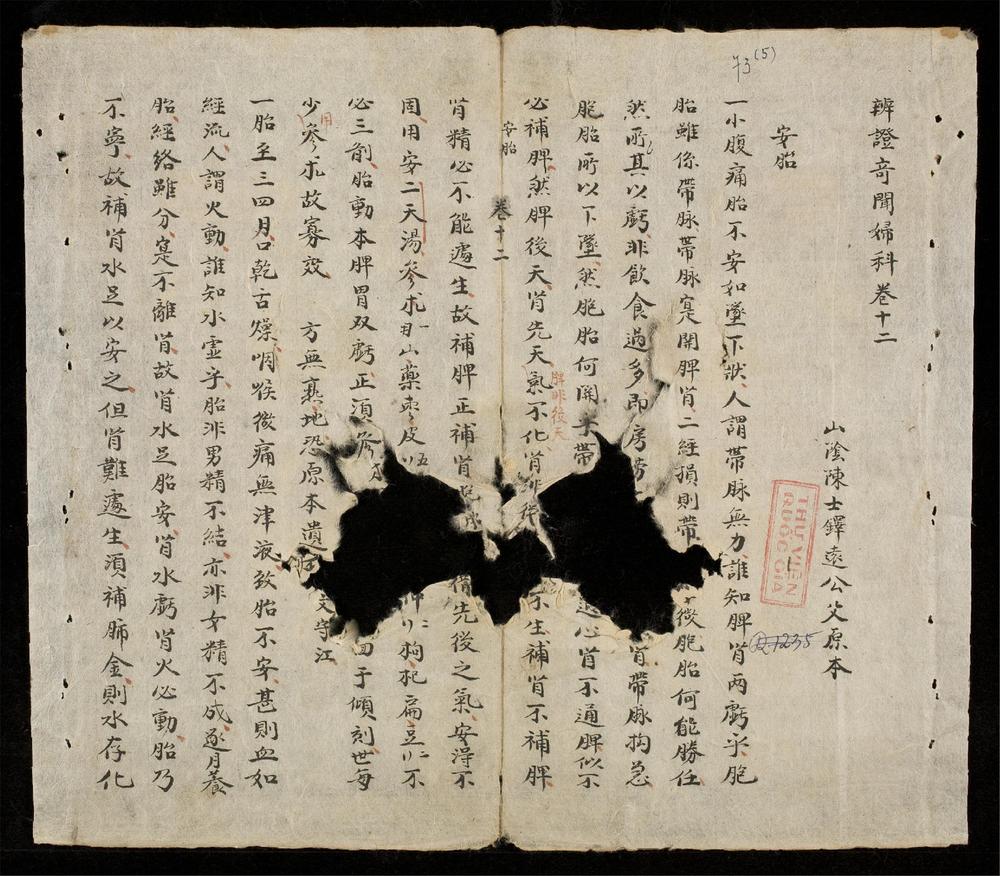 73(5)
辨證奇聞婦科卷十二
山陰陳士鐸遠公父原本
THU VIEN
QUOC GIA
R.1235
安胎
一小腹痛胎不安如墜下狀人謂帶脉無力誰知脾肖两虧乎胞
胎雖係帶脉帶脉寔関脾肖二經損則帶
微胞胎何能勝任
然所以
其以虧非飲食過多即房勞
肖帶脉拘急
胞胎所以下墜然胞胎何関
帶
心肖不通脾似不
脾非後天
必補脾然脾後天肖先天氣不化肖非後
不生補肖不補脾
安胎
卷十二
肖精必不能遽生故補脾正補肖
先後之氣安得不
固用安二天湯參朮一
山藥枣皮五
枸杞二扁豆二不
必三劑胎動本脾胃双虧正湏參
面于傾刻世每
少用參朮故寡效
方無熟地恐原本遺
文守江
一胎至三四月口乾舌燥咽喉微痛無津液致胎不安甚則血如
經流人謂火動誰知水虛乎胎非男精不結亦非女精不成逐月養
胎經絡雖分寔不離肖故肖水足胎安肖水虧肖火必動胎乃
不寧故補肖水足以安之但肖難遽生湏補肺金則水存化